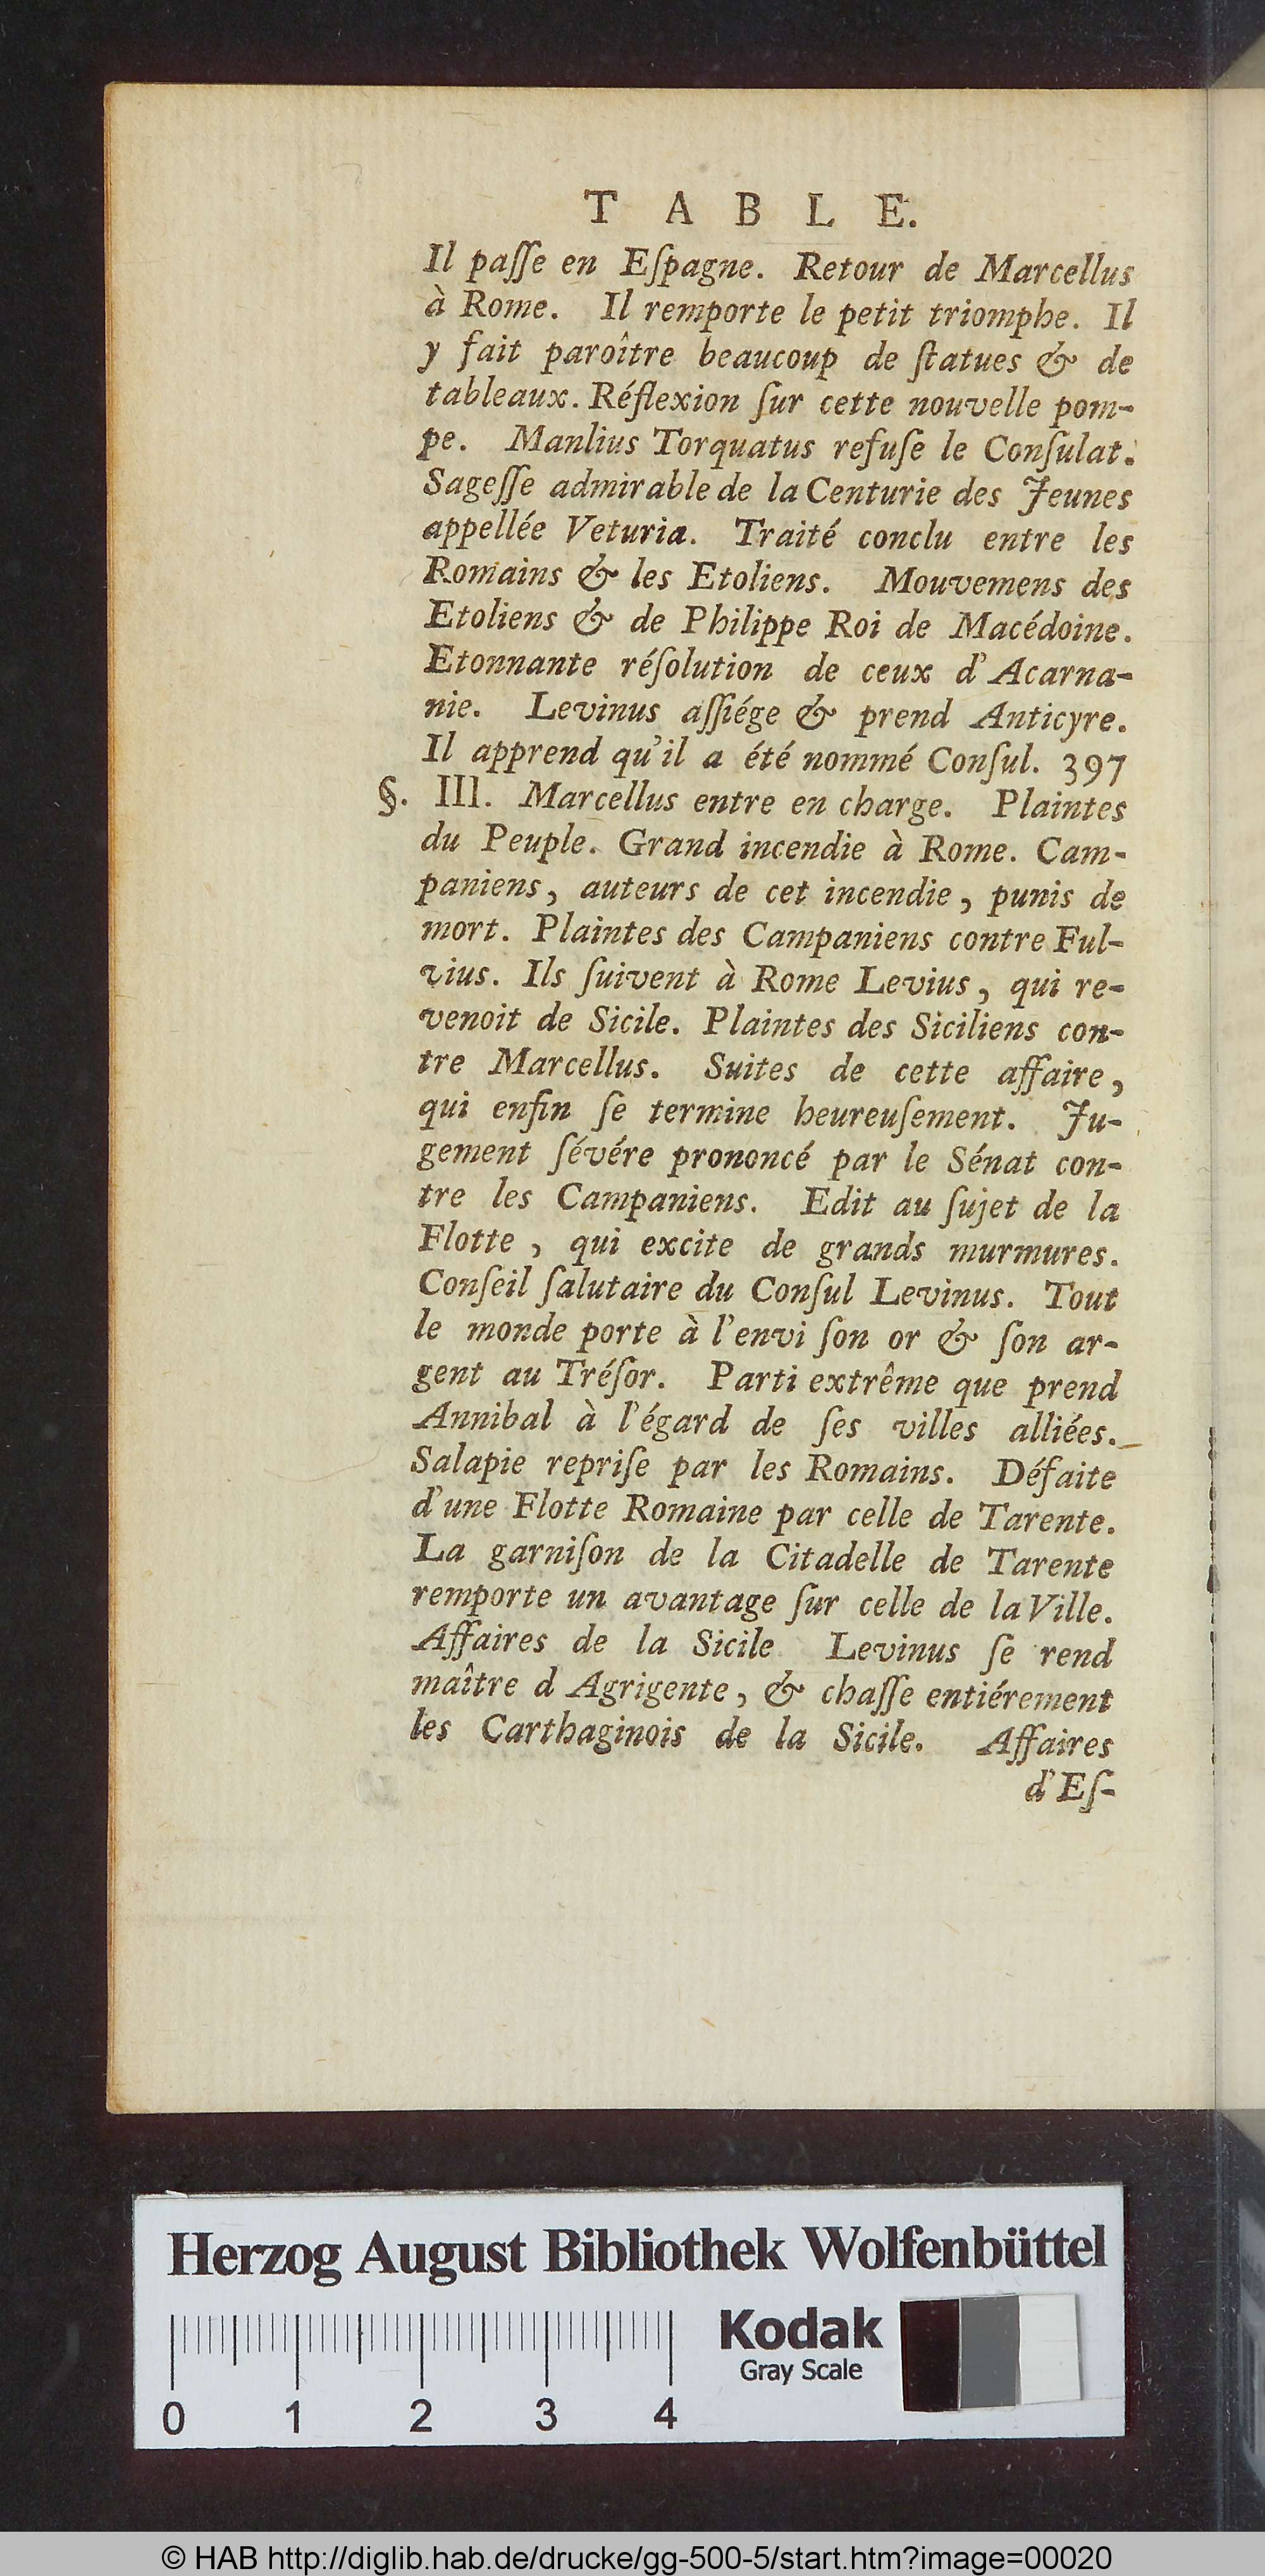 TABLE.
Il paſſe en Eſpagne. Retour de Marcellus
à Rome. Il remporte le petit triomphe. Il
y fait paroître beaucoup de ſtatues & de
tableaux. Réflexion ſur cette nouvelle pom-
pe. Manlius Torquatus refuſe le Conſulat.
Sageſſe admirable de la Centurie des Jeunes
appellée Veturia. Traité conclu entre les
Romains & les Etoliens. Mouvemens des
Etoliens & de Philippe Roi de Macédoine.
Etonnante réſolution de ceux d'Acarna-
nie. Levinus aſſiége & prend Anticyre.
Il apprend qu'il a été nommé Conſul. 397
§. III. Marcellus entre en charge. Plaintes
du Peuple. Grand incendie à Rome. Cam-
paniens, auteurs de cet incendie, punis de
mort. Plaintes des Campaniens contre Ful-
vius. Ils ſuivent à Rome Levius, qui re-
venoit de Sicile. Plaintes des Siciliens con-
tre Marcellus. Suites de cette affaire,
qui enfin ſe termine heureuſement. Ju-
gement ſévére prononcé par le Sénat con-
tre les Campaniens. Edit au ſujet de la
Flotte, qui excite de grands murmures.
Conſeil ſalutaire du Conſul Levinus. Tout
le monde porte à l'envi ſon or & ſon ar-
gent au Tréſor. Parti extrême que prend
Annibal à l'égard de ſes villes alliées.
Salapie repriſe par les Romains. Défaite
d'une Flotte Romaine par celle de Tarente.
La garniſon de la Citadelle de Tarente
remporte un avantage ſur celle de la Ville.
Affaires de la Sicile Levinus ſe rend
maître d Agrigente, & chaſſe entiérement
les Carthaginois de la Sicile. Affaires
d'Eſ-
Herzog August Bibliothek Wolfenbüttel
Kodak
Gray Scale
0 1 2 3 4
© HAB http://diglib.hab.de/drucke/gg-500-5/start.htm?image=00020